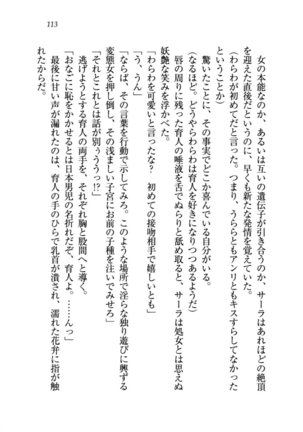 113
女の本能なのか、あるいは互いの遺伝子が引き合うのか、サーラはあれほどの絶頂
を迎えた直後だというのに、早くも新たな発情を覚えていた。
(わらわが初めてだと言った。つまり、うららともアンリともキスすらしてなかった
ということか)
驚いたことに、その事実でどこか喜んでいる自分がいる。
(なるほど。どうやらわらわは育人を好きになりつつあるようだ)
唇の周りに残った育人の唾液を舌でぬらりと舐め取ると、サーラは処女とは思えぬ
妖艶な笑みを浮かべた。
「わらわを可愛いと言ったな？　初めての接吻相手で嬉しいとも」
「う、うん」
「ならば、その言葉を行動で示してみろ。このような場所で淫らな独り遊びに興ずる
変態女を押し倒し、その浅ましい子宮にお前の子種を注いでみせろ」
「それとこれとは話が別、うううっ!?」
逃げようとする育人の両手を、それぞれ胸と股間へと導く。
「おなごに恥をかかせるとは日本男児の名折れだぞ、育人よ。……んっ」
最後に甘い声が漏れたのは、育人の手のひらで乳首が潰され、濡れた花弁に指が触
れたからだ。